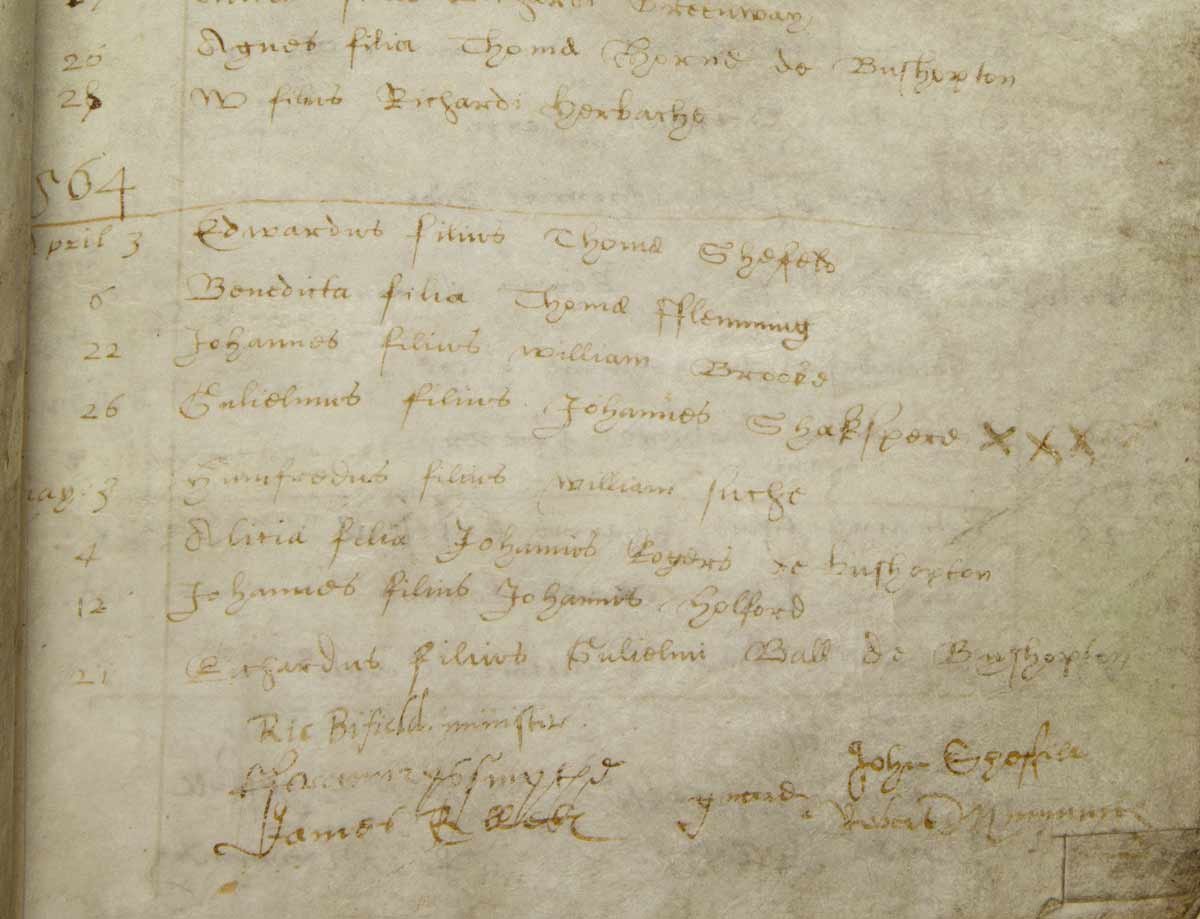 Greenway
26 Agnes filia Thomæ Thorne de Bushopton
28 W filius Richardi Herbache
564
April 3 Edwardus filius Thomæ Shefeld
6 Benedicta filia Thomæ fflemming
22 Johannes filius William Brooke
26 Gulielmus filius Johannes Shakspere XXX
may 3 Humfredus filius William suche
4 Alicia filia Johannis Rogers de bushopton
12 Johannes filius Johannis Holford
21 Richardus filius Gulielmi Ball de Bushopton
Ric Bifield minister
smythe John
James gward